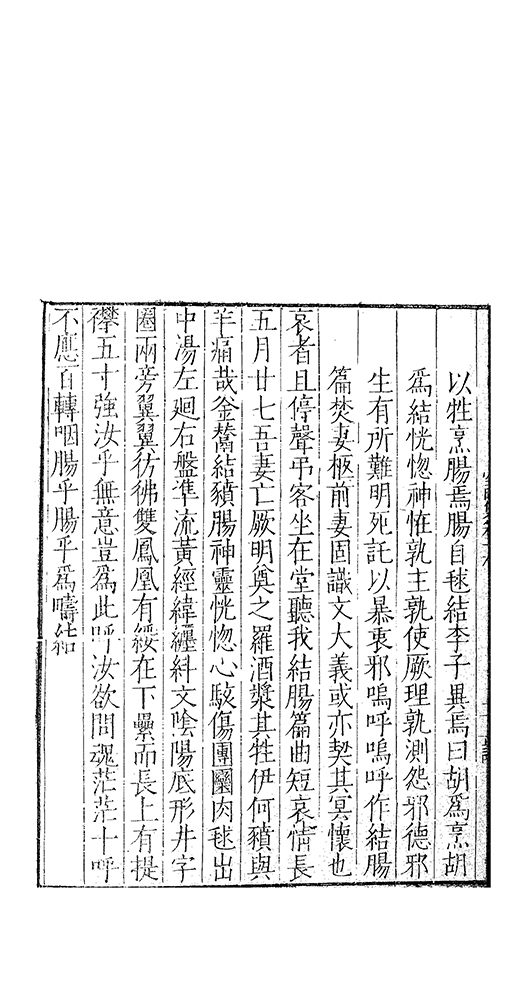 以牲烹腸焉腸自毬結李子異焉曰胡爲烹胡
爲結恍惚神怪孰主孰使厥理孰測怨邪德邪
生有所難明死託以暴衷邪嗚呼嗚呼作結腸
篇焚妻柩前妻固識文大義或亦契其冥懷也
哀者且停聲弔客坐在堂聽我結腸篇曲短哀情長
五月廿七吾妻亡厥明奠之羅酒漿其牲伊何豶與
羊痛哉釜鬵結豶腸神靈恍惚心駭傷團圞肉毬出
中湯左廻右盤準流黃經緯纒糾文陰陽底形井字
圈兩旁翼翼彷彿雙鳳凰有綏在下纍而長上有提
襻五寸強汝乎無意豈爲此呼汝欲問魂茫茫十呼
不應百轉咽腸乎腸乎爲疇結